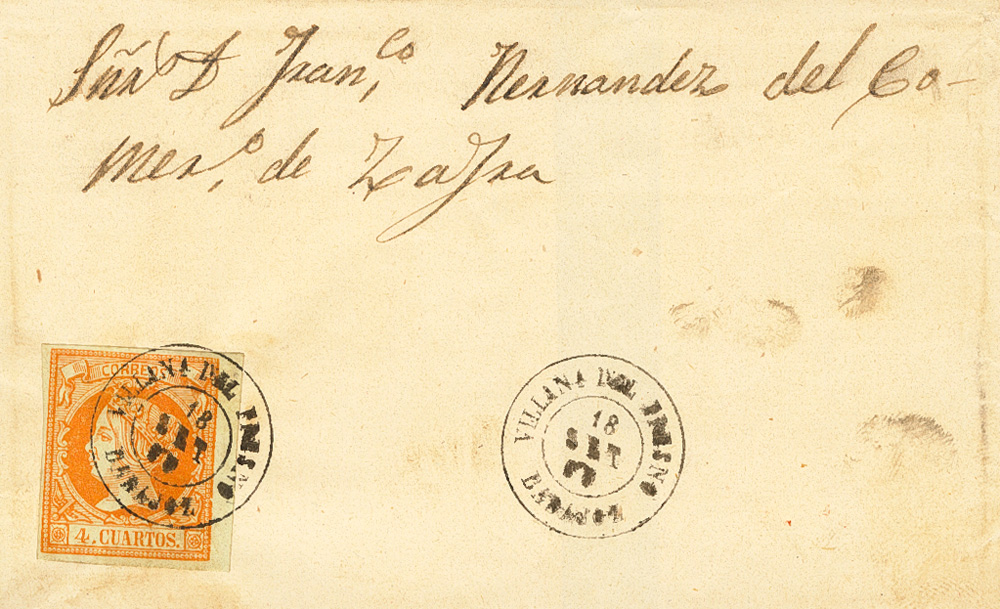 Sñr D Fran,co Hernandez del Co-
merº, de Zafra
CORREOS
4. CUARTOS.
VILLANA DEL FRESNO
18
SET
BADAJOZ
VILLANA DEL FRESNO
18
SET
BADAJOZ